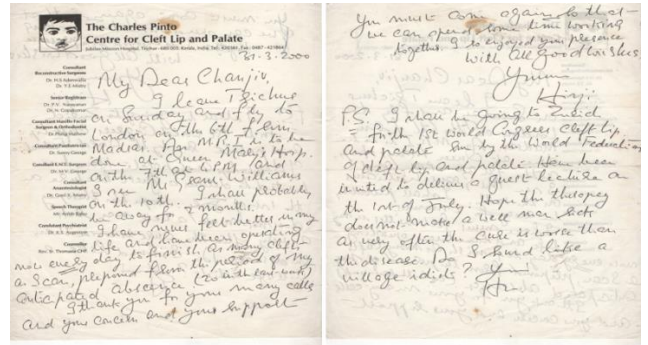 The Charles Pinto
Centre for Cleft Lip and Palate
31-3-2000
Consultant
Reconstructive Surgeon
Dr. H.S. Adenwalla
Senior Registrar
Dr. P.V. Narayanan
Consultant Maxillo Facial
Surgeon & Orthodontist
Consultant Paediatrician
Consultant E.N.T. Surgeon
Consultant
Anaesthesiologist
Speech Therapist
Consultant Psychiatrist
Counsellor
My Dear
I leave Trichur
on Sunday and fly to
London on the 6th from
Madras. An MRI is to be
done at Queen Mary's Hosp.
on the 7th at 4 PM and
I see Mr Williams
on the 10th. I shall probably
be away for 2 months.
I have never felt better in my
life and have been operating
every day to finish as many cleft
as I can, prepared for the period of my
anticipated absence
I thank you for your many calls
and your concern and your support
You must come again so that
we can spend some time working
together. I so enjoyed your presence
With all Good wishes
Yours
Hirji
P.S. I shall be going to Zurich
for the 1st World Congress cleft lip
and palate run by the World Federation
of cleft lip and palate. Have been
invited to deliver a guest lecture on
the 1st of July. Hope the therapy
does not make a well man sick
as very often the cure is worse than
the disease. Do I sound like a
village idiot?
Yours